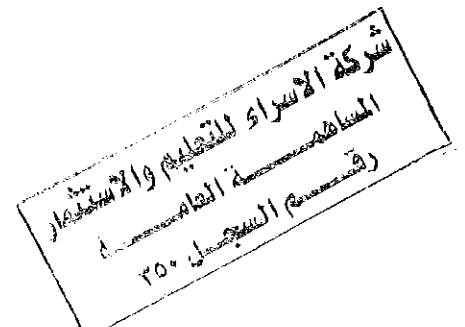 شركة الاسراء للتعليم والاستثمار
المساهمة العامة
رقم السجل ٣٥٠